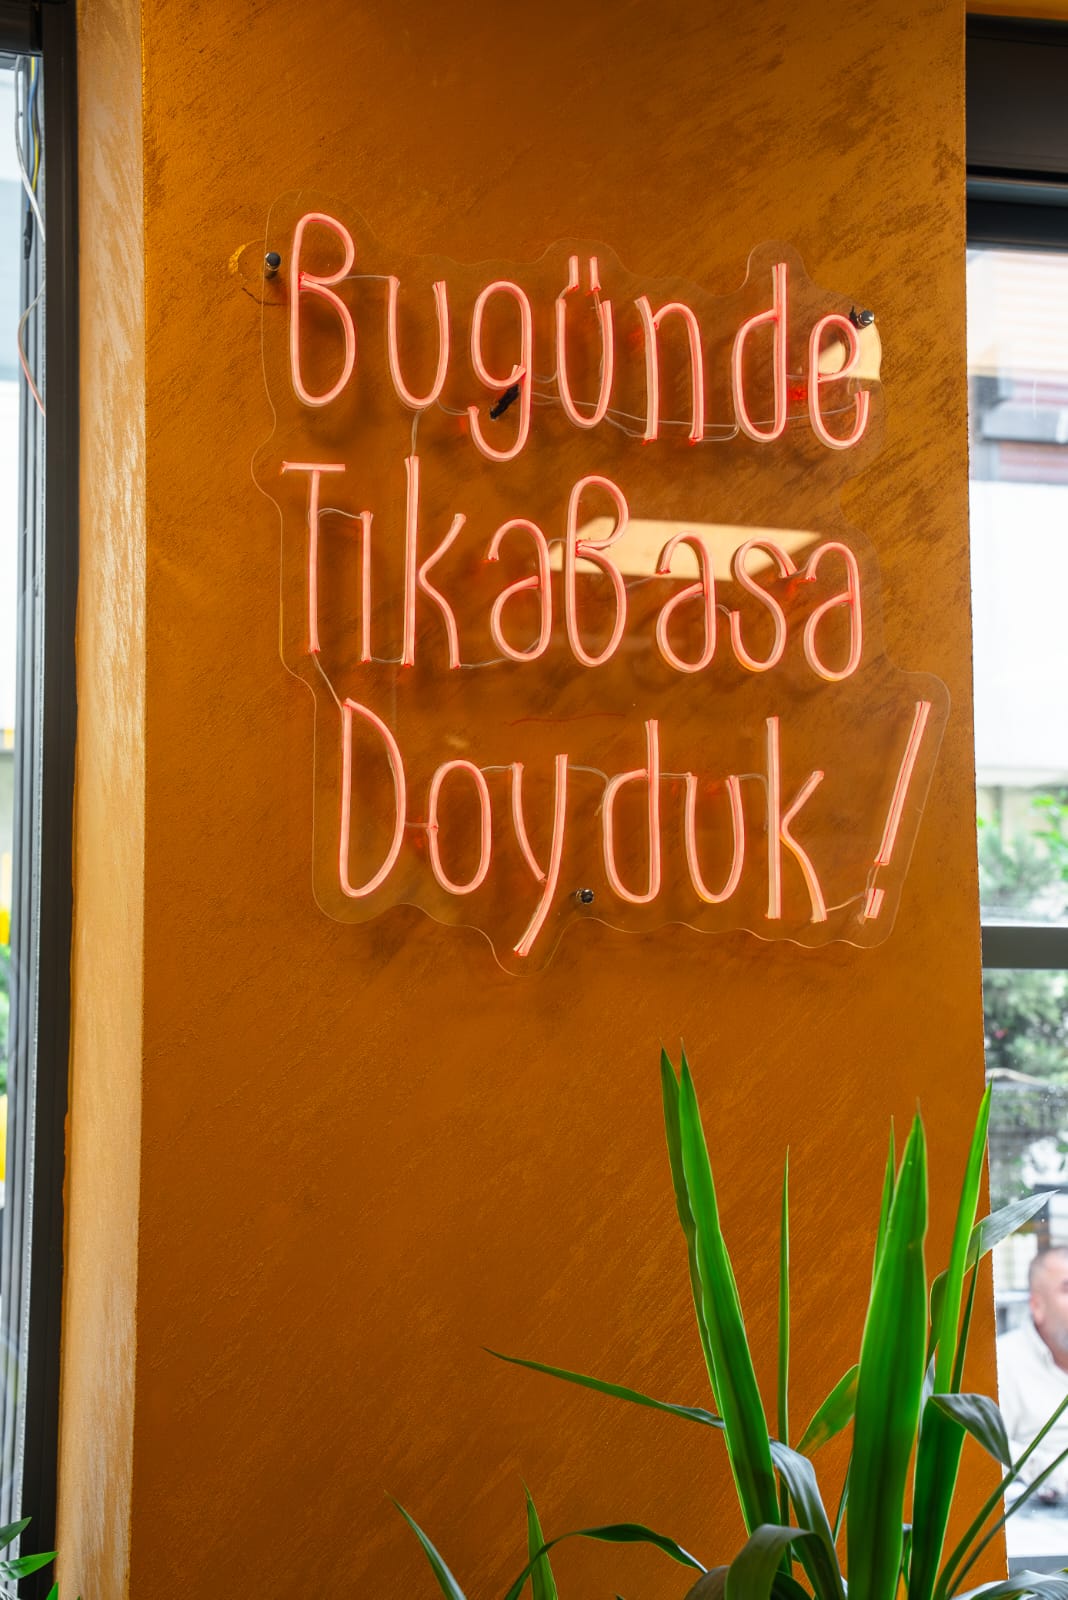 Bugünde
TıkaBasa
Doyduk!